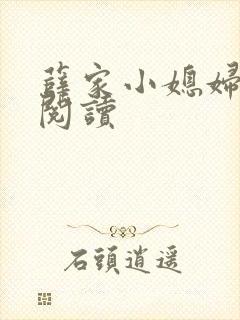 薛家小媳婦
閱讀
石頭逍遥